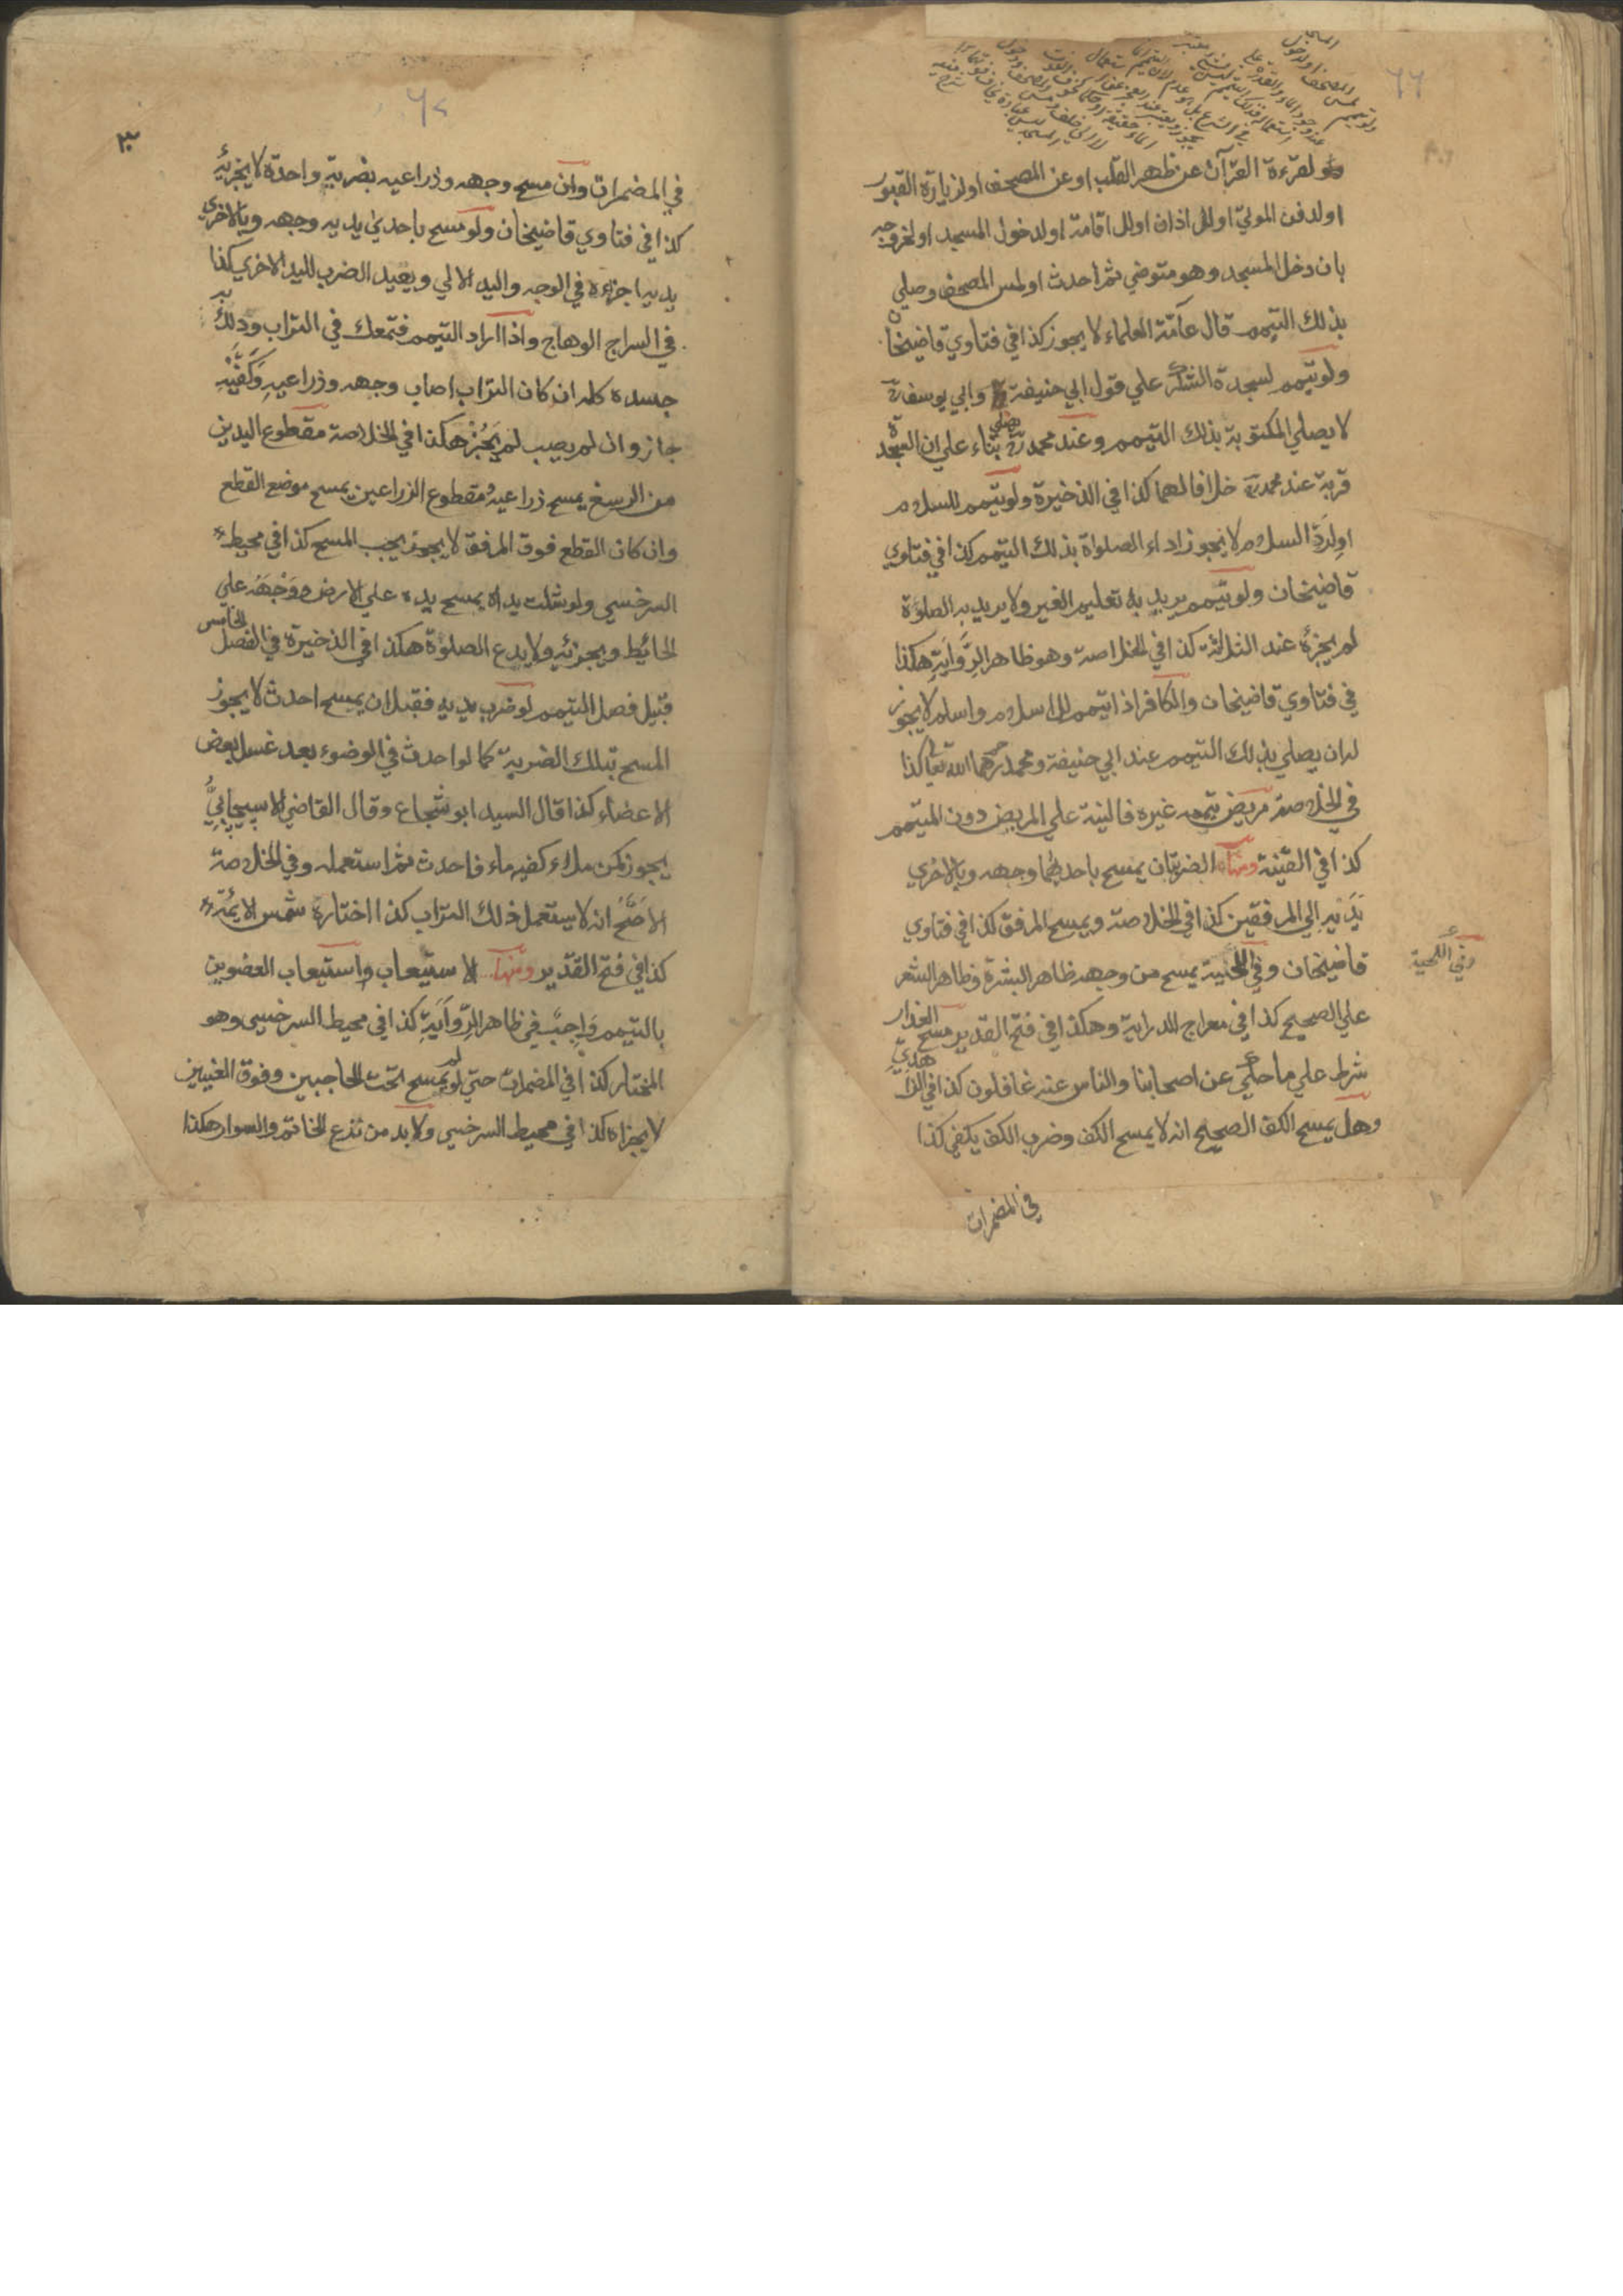 ٦٦
ولو تيمم لمس المصحف او لدخول المسجد
عند وجود الماء والقدرة على
ولقرءة القرآن عن ظهر القلب او عن المصحف او لزيارة القبور
او لدفن الموتي او للاذان او للاقامة او لدخول المسجد او لخروجه
بان دخل المسجد وهو متوضي ثم احدث او لمس المصحف وصلي
بذلك التيمم قال عامّة العلماء لا يجوز كذا في فتاوي قاضيخان
ولو تيمم لسجدة الشكر علي قول ابي حنيفة وابي يوسف رح
لا يصلي المكتوبة بذلك التيمم وعند محمد رح يصلي بناء علي ان السجدة
قربة عند محمد رح خلافا لهما كذا في الذخيرة ولو تيمم للسلام
او لردّ السلام لا يجوز اداء الصلواة بذلك التيمم كذا في فتاوي
قاضيخان ولو تيمم يريد به تعليم الغير ولا يريد به الصلوة
لم يجزئه عند الثلاثة كذا في الخلاصة وهو ظاهر الرّواية هكذا
في فتاوي قاضيخان والكافر اذا تيمم للاسلام واسلم لا يجوز
له ان يصلي بذلك التيمم عند ابي حنيفة ومحمد رحمهما الله تعا كذا
في الخلاصة مريض تيممه غيره فالنية علي المريض دون المتيمم
كذا في القنية ومنها الضربتان يمسح باحديهما وجهه وبالاخري
يديه الي المرفقين كذا في الخلاصة ويمسح المرفق كذا في فتاوي
قاضيخان وفي اللحية يمسح من وجهه ظاهر البشرة وظاهر الشعر
وفي اللحية
علي الصحيح كذا في معراج الدراية وهكذا في فتح القدير مسح العذار
شرط علي ما حكي عن اصحابنا والناس عنه غافلون كذا في الزاهدي
وهل يمسح الكف الصحيح انه لا يمسح الكف وضرب الكف يكفي كذا
في المضمرات
٦٧
٣
في المضمرات وان مسح وجهه وذراعيه بضربة واحدة لا يجزئه
كذا في فتاوي قاضيخان ولو مسح باحدي يديه وجهه وبالاخري
يديه اجزءه في الوجه واليد الالي ويعيد الضرب لليد الاخري كذا
في السراج الوهاج واذا اراد التيمم فتمعك في التراب ودلك به
جسده كله ان كان التراب اصاب وجهه وذراعيه وَكَفَّيْهِ
جاز وان لم يصب لم يَجُزْ هكذا في الخلاصة مقطوع اليدين
من الرسغ يمسح ذراعيه ومقطوع الزراعين يمسح موضع القطع
وان كان القطع فوق المرفق لا يجوز يجب المسح كذا في محيط
السرخسي ولو شلت يداه يمسح يده علي الارض وَوَجْهَهُ علي
الحائيط ويجزئه ولا يدع الصلوة هكذا في الذخيرة في الفصل الخامس
قبيل فصل التيمم لو ضرب يديه فقبل ان يمسح احدث لا يجوز
المسح بتلك الضربة كما لو احدث في الوضوء بعد غسل بعض
الاعضاء كذا قال السيد ابو شجاع وقال القاضي الاسبيجابيُّ
يجوز كمن ملاء كفيه ماء فاحدث ثم استعمله وفي الخلاصة
الاصَحّ انه لا يستعمل ذلك التراب كذا اختاره شمس الايمّة
كذا في فتح القدير ومنها الاستيعاب واستيعاب العضوين
بالتيمم وَاجِبٌ في ظاهر الرّوَايَةِ كذا في محيط السرخسي وهو
المختار كذا في المضمرات حتي لو لم يمسح تحت الحاجبين وفوق العنيين
لا يجزاه كذا في محيط السرخسي ولا بد من نزع الخاتم والسوار هكذا